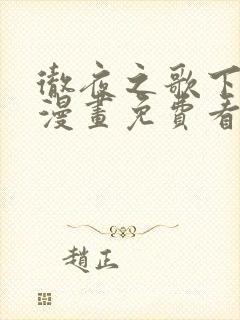 徹夜之歌下
漫畫免費看
趙正